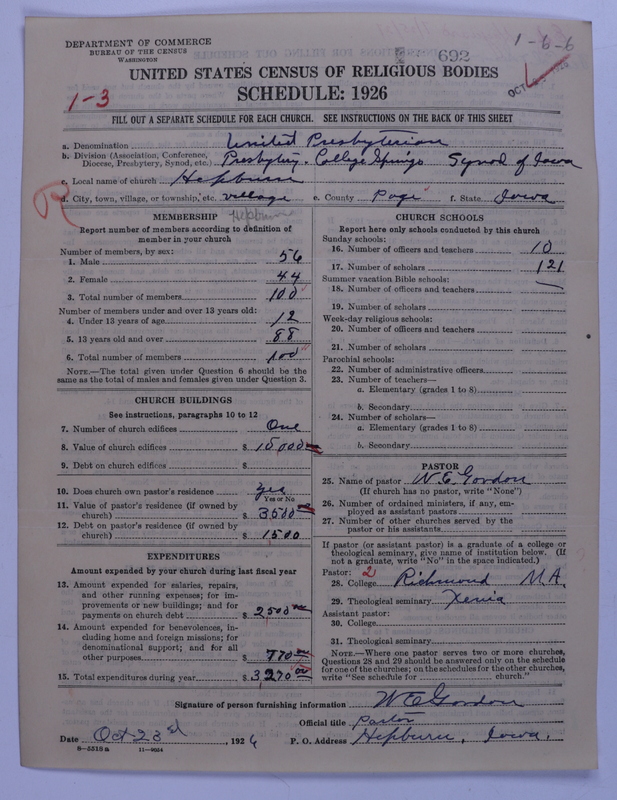 DEPARTMENT OF COMMERCE
BUREAU OF THE CENSUS
WASHINGTON
692
1-6-6
UNITED STATES CENSUS OF RELIGIOUS BODIES
1-3
SCHEDULE: 1926
OCT
FILL OUT A SEPARATE SCHEDULE FOR EACH CHURCH. SEE INSTRUCTIONS ON THE BACK OF THIS SHEET
a. Denomination United Presbyterian
b. Division (Association, Conference, Diocese, Presbytery, Synod, etc.) Presbytery. College Springs Synod of Iowa
c. Local name of church Hepburn
d. City, town, village, or township, etc. village e. County Page f. State Iowa
R
Hepburn
MEMBERSHIP
Report number of members according to definition of member in your church
Number of members, by sex:
1. Male 56
2. Female 44
3. Total number of members 100
Number of members under and over 13 years old:
4. Under 13 years of age 12
5. 13 years old and over 88
6. Total number of members 100
NOTE.—The total given under Question 6 should be the same as the total of males and females given under Question 3.
CHURCH BUILDINGS
See instructions, paragraphs 10 to 12
7. Number of church edifices One
8. Value of church edifices $ 10000
9. Debt on church edifices $
10. Does church own pastor's residence Yes
Yes or No
11. Value of pastor's residence (if owned by church) $ 3500
12. Debt on pastor's residence (if owned by church) $ 1500
EXPENDITURES
Amount expended by your church during last fiscal year
13. Amount expended for salaries, repairs, and other running expenses; for improvements or new buildings; and for payments on church debt $ 2500 00
14. Amount expended for benevolences, including home and foreign missions; for denominational support; and for all other purposes $ 770 00
15. Total expenditures during year $ 3270 00
CHURCH SCHOOLS
Report here only schools conducted by this church
Sunday schools:
16. Number of officers and teachers 10
17. Number of scholars 121
Summer vacation Bible schools:
18. Number of officers and teachers —
19. Number of scholars
Week-day religious schools:
20. Number of officers and teachers
21. Number of scholars
Parochial schools:
22. Number of administrative officers
23. Number of teachers—
a. Elementary (grades 1 to 8)
b. Secondary
24. Number of scholars—
a. Elementary (grades 1 to 8)
b. Secondary
PASTOR
25. Name of pastor W. E. Gordon
(If church has no pastor, write "None")
26. Number of ordained ministers, if any, employed as assistant pastors
27. Number of other churches served by the pastor or his assistants
If pastor (or assistant pastor) is a graduate of a college or theological seminary, give name of institution below. (If not a graduate, write "No" in the space indicated.)
Pastor: 2
28. College Richmond M.A.
29. Theological seminary Xenia
Assistant pastor:
30. College
31. Theological seminary
NOTE.—Where one pastor serves two or more churches, Questions 28 and 29 should be answered only on the schedule for one of the churches; on the schedules for the other churches, write "See schedule for church."
Signature of person furnishing information W E Gordon
Official title Pastor
Date Oct 23d, 1926 P. O. Address Hepburn, Iowa.
8-5515a 11-9054